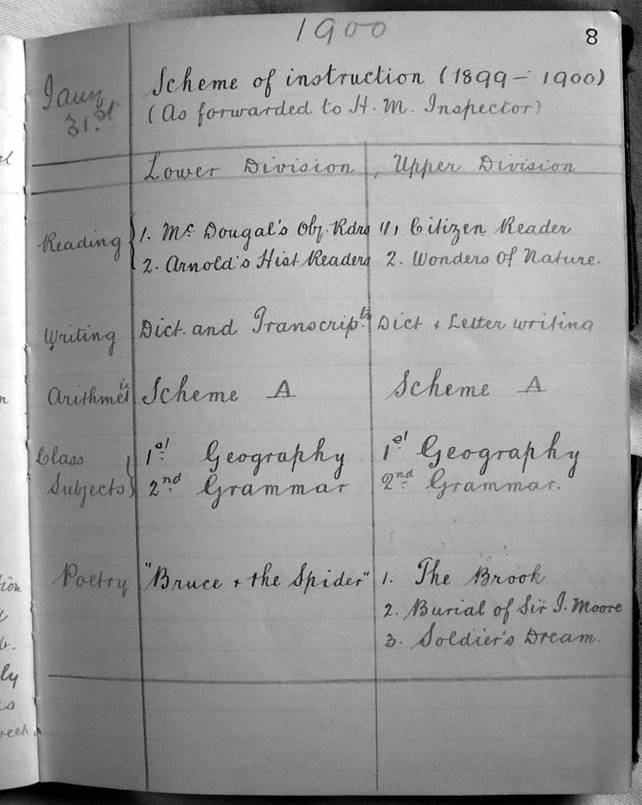 1900
8
Jany 31.st
Scheme of instruction (1899 – 1900)
(As forwarded to H. M. Inspector)
Lower Division Upper Division
Reading
1. Mc Dougal's Obj. Rdrs 1. Citizen Reader
2. Arnold's Hist Readers 2. Wonders Of Nature.
Writing Dict. and Transcriptn Dict & Letter writing
Arithmetic Scheme A Scheme A
Class 1st Geography 1st Geography
Subjects 2nd Grammar 2nd Grammar.
Poetry "Bruce & the Spider" 1. The Brook
2. Burial of Sir J. Moore
3. Soldier's Dream.